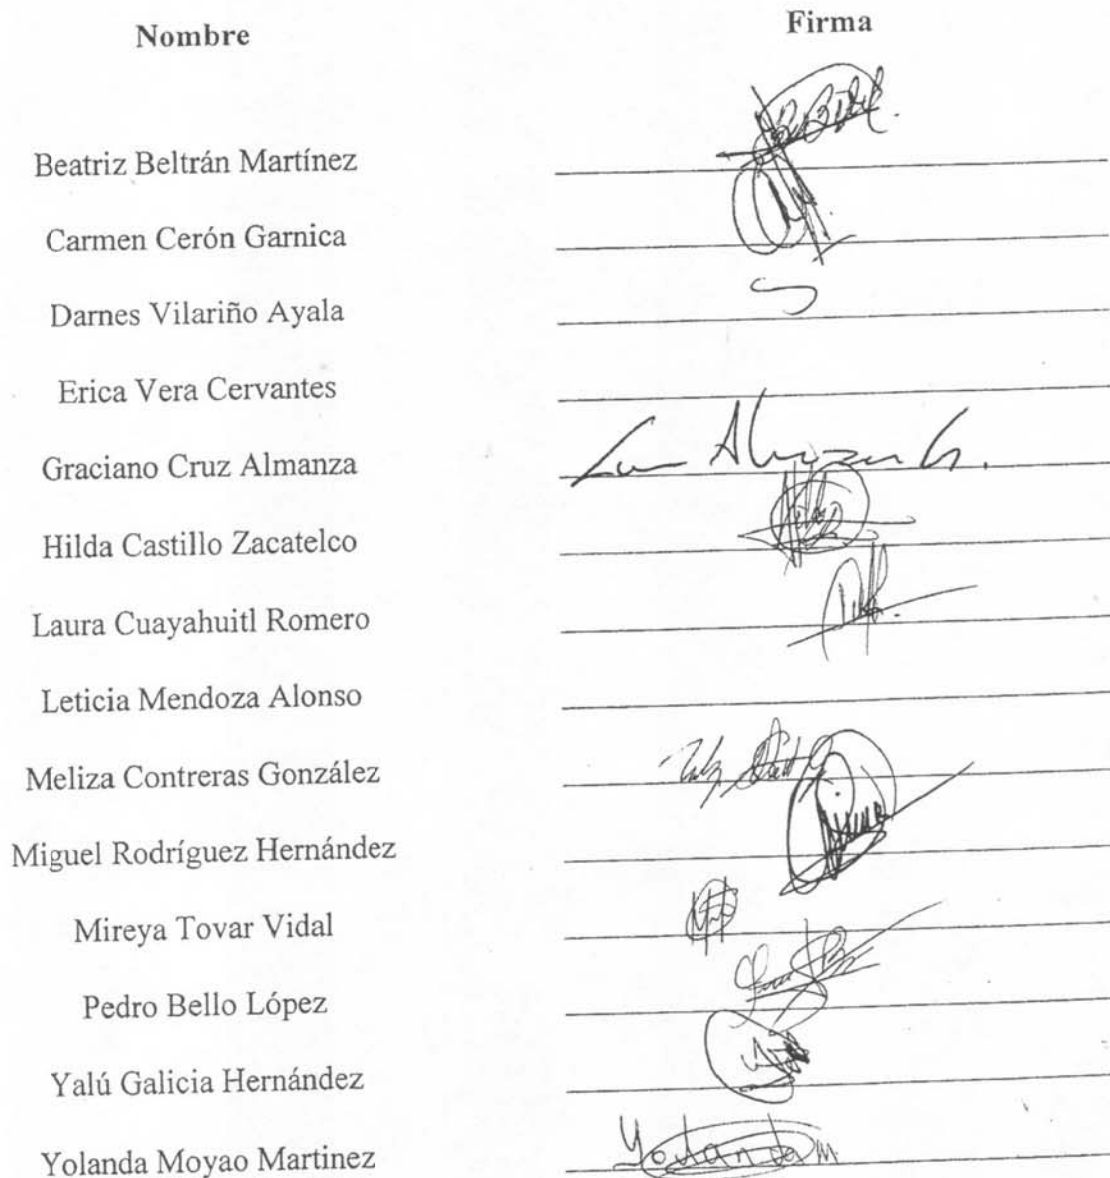 Nombre Firma
Beatriz Beltrán Martínez
Carmen Cerón Garnica
Darnes Vilariño Ayala
Erica Vera Cervantes
Graciano Cruz Almanza
Hilda Castillo Zacatelco
Laura Cuayahuitl Romero
Leticia Mendoza Alonso
Meliza Contreras González
Miguel Rodríguez Hernández
Mireya Tovar Vidal
Pedro Bello López
Yalú Galicia Hernández
Yolanda Moyao Martinez Yolanda M.